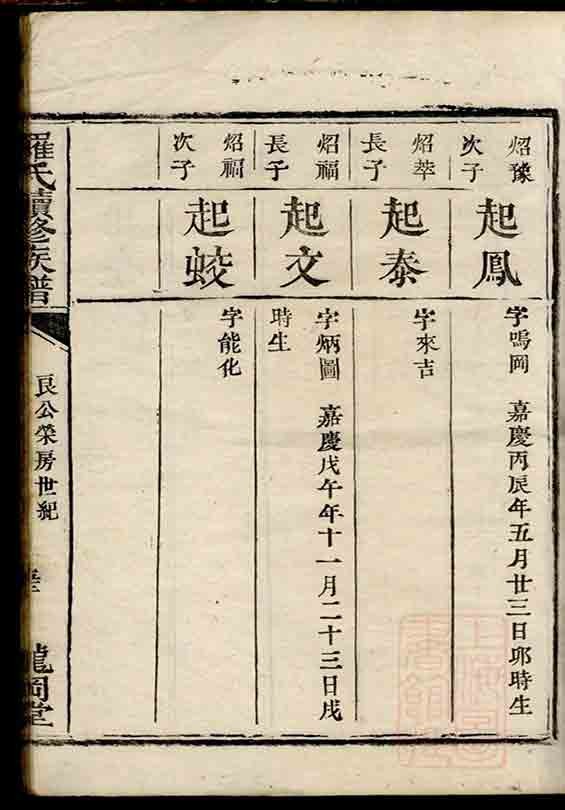 炤豫
次子
起鳳
字鳴岡 嘉慶丙辰年五月廿三日邜時生
炤萃
長子
起泰
字來吉
炤福
長子
起文
字炳圖 嘉慶戊午年十一月二十三日戌
時生
炤福
次子
起蛟
字能化
羅氏續修族譜
良公榮房世紀
龍岡堂